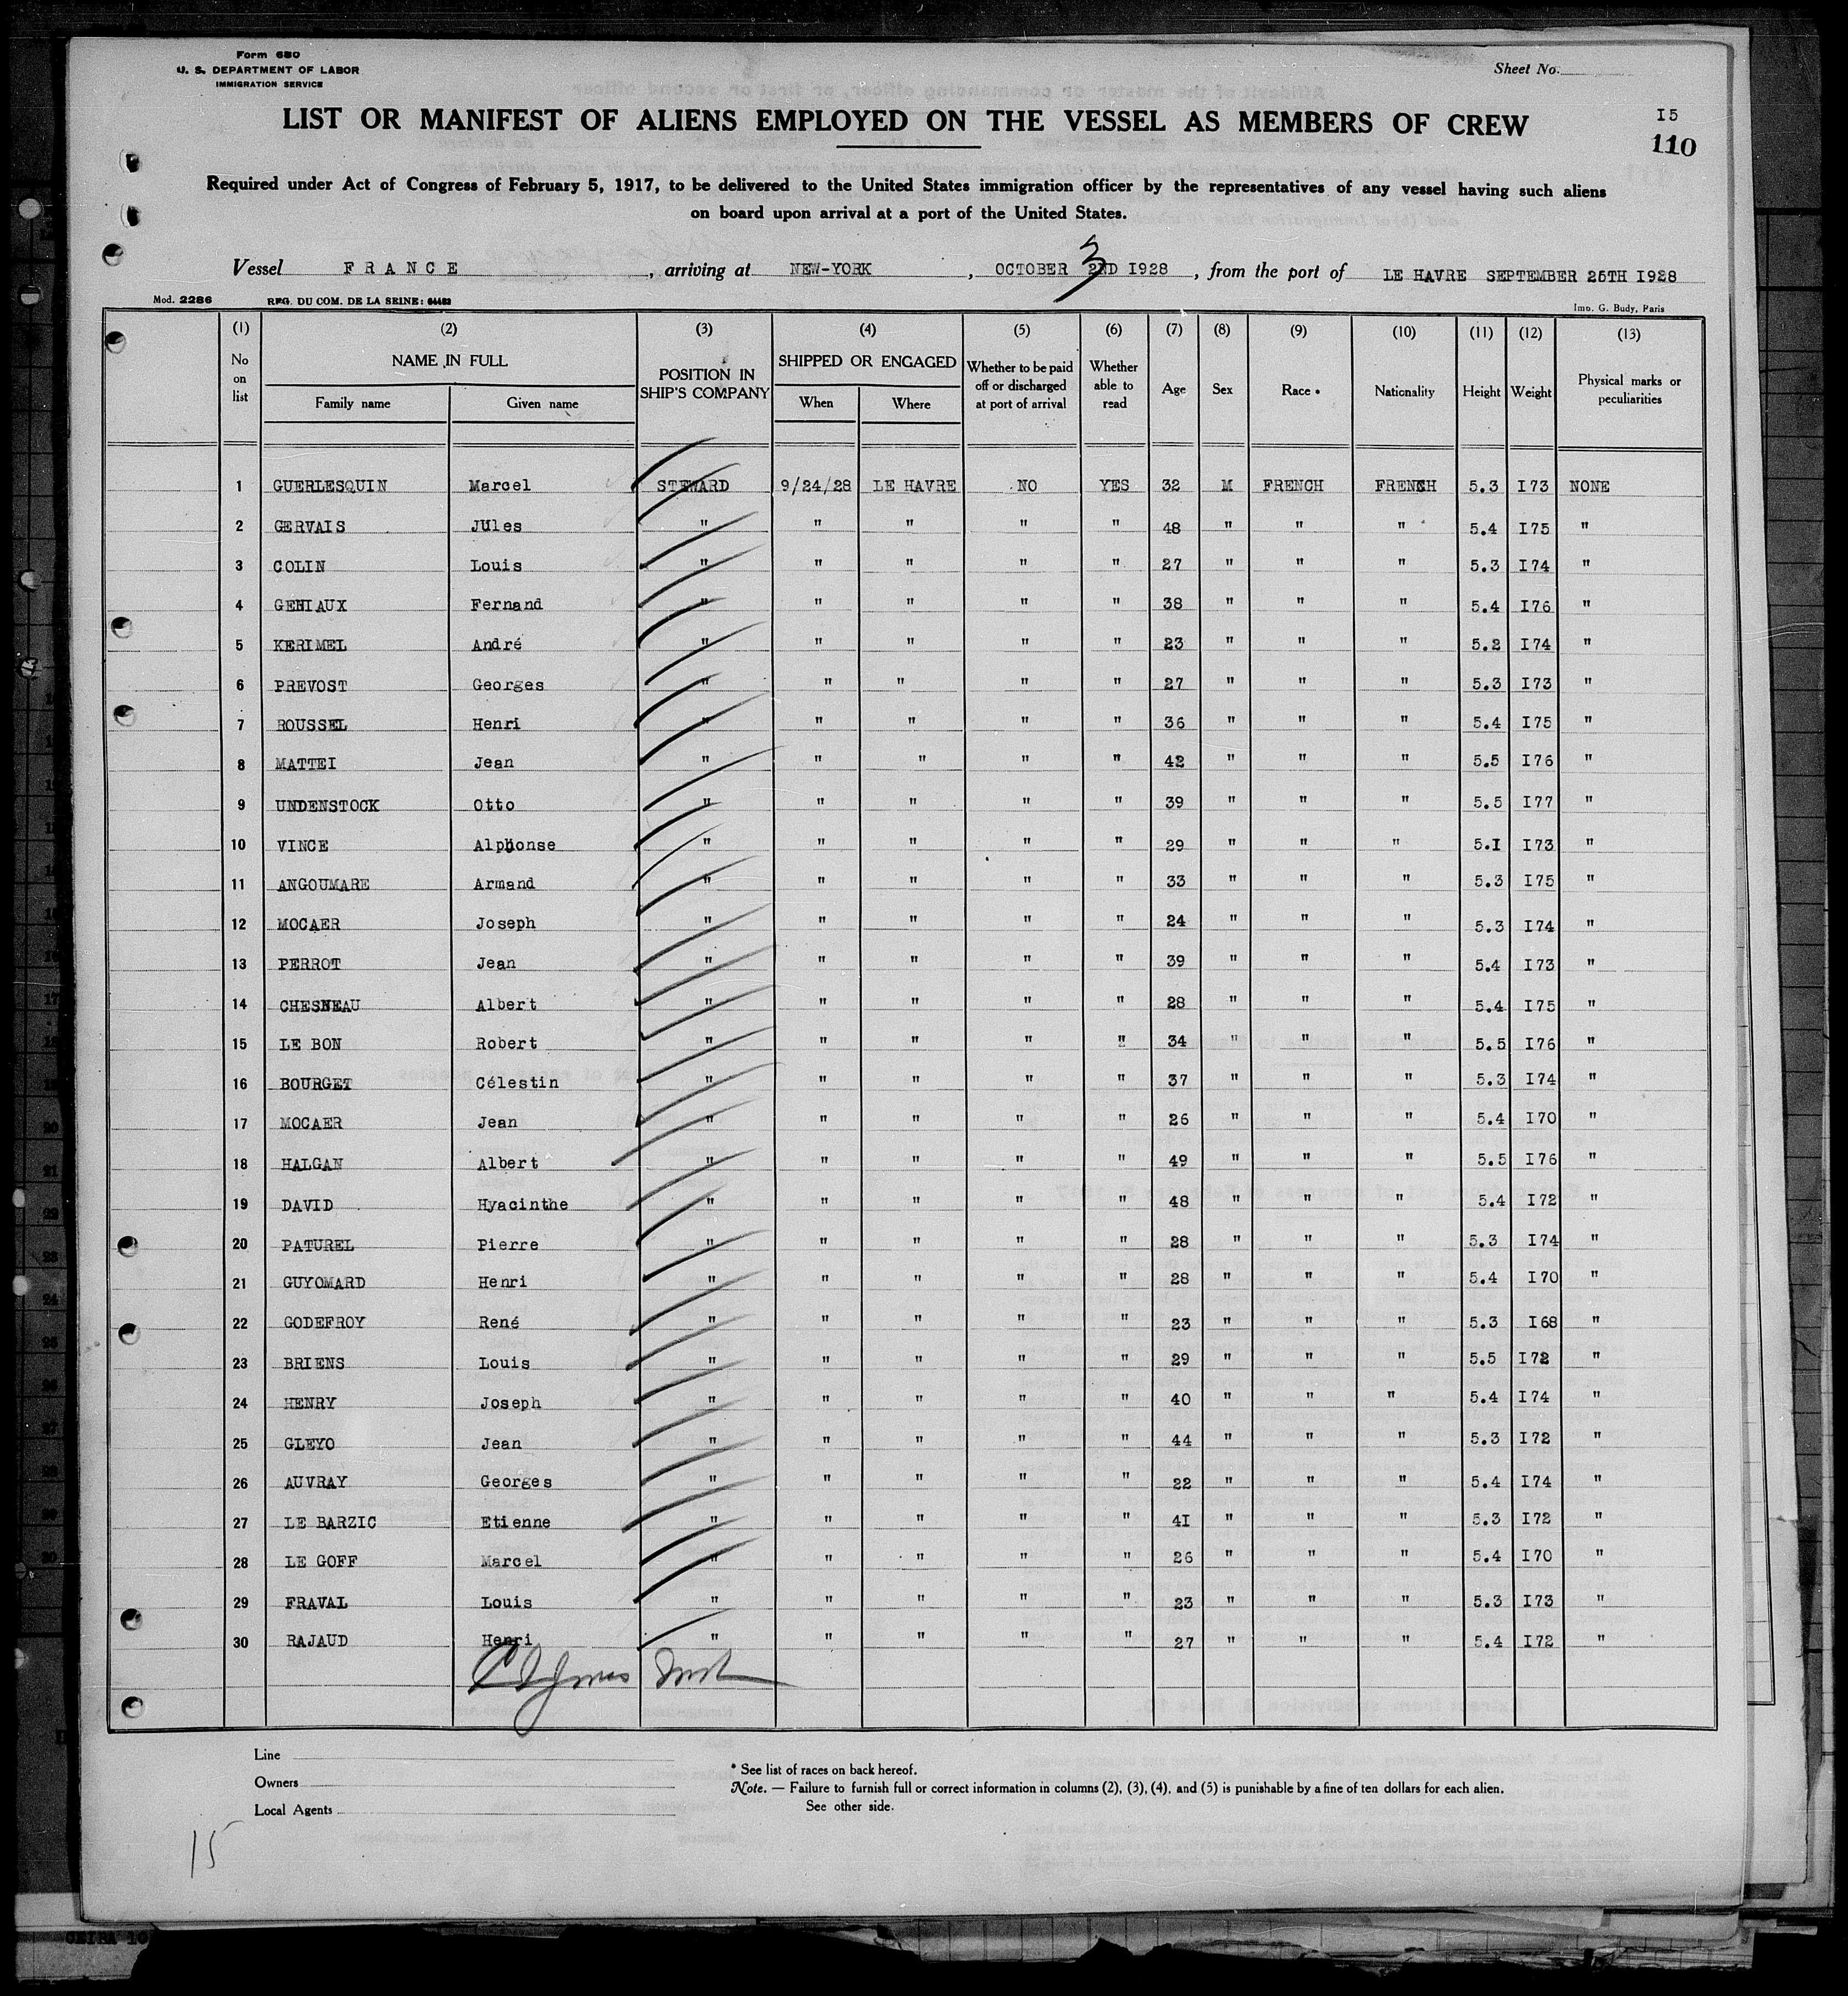 Form 680
U. S. DEPARTMENT OF LABOR
IMMIGRATION SERVICE
Sheet No.
LIST OR MANIFEST OF ALIENS EMPLOYED ON THE VESSEL AS MEMBERS OF CREW
I5
110
Required under Act of Congress of February 5, 1917, to be delivered to the United States immigration officer by the representatives of any vessel having such aliens
on board upon arrival at a port of the United States.
3
Vessel FRANCE, arriving at NEW-YORK, OCTOBER 2ND I928, from the port of LE HAVRE SEPTEMBER 25TH I928
Mod. 2286 REG. DU COM. DE LA SEINE: 64483 Imp. G. Budy, Paris
(1) (2) (3) (4) (5) (6) (7) (8) (9) (10) (11) (12) (13)
No on list NAME IN FULL Family name Given name POSITION IN SHIP'S COMPANY SHIPPED OR ENGAGED When Where Whether to be paid off or discharged at port of arrival Whether able to read Age Sex Race * Nationality Height Weight Physical marks or peculiarities
1 GUERLESQUIN Marcel STEWARD 9/24/28 LE HAVRE NO YES 32 M FRENCH FRENCH 5.3 I73 NONE
2 GERVAIS Jules " " " " " 48 " " " 5.4 I75 "
3 COLIN Louis " " " " " 27 " " " 5.3 I74 "
4 GENIAUX Fernand " " " " " 38 " " " 5.4 I76 "
5 KERIMEL André " " " " " 23 " " " 5.2 I74 "
6 PREVOST Georges " " " " " 27 " " " 5.3 I73 "
7 ROUSSEL Henri " " " " " 36 " " " 5.4 I75 "
8 MATTEI Jean " " " " " 42 " " " 5.5 I76 "
9 UNDENSTOCK Otto " " " " " 39 " " " 5.5 I77 "
10 VINCE Alphonse " " " " " 29 " " " 5.I I73 "
11 ANGOUMARE Armand " " " " " 33 " " " 5.3 I75 "
12 MOCAER Joseph " " " " " 24 " " " 5.3 I74 "
13 PERROT Jean " " " " " 39 " " " 5.4 I73 "
14 CHESNEAU Albert " " " " " 28 " " " 5.4 I75 "
15 LE BON Robert " " " " " 34 " " " 5.5 I76 "
16 BOURGET Célestin " " " " " 37 " " " 5.3 I74 "
17 MOCAER Jean " " " " " 26 " " " 5.4 I70 "
18 HALGAN Albert " " " " " 49 " " " 5.5 I76 "
19 DAVID Hyacinthe " " " " " 48 " " " 5.4 I72 "
20 PATUREL Pierre " " " " " 28 " " " 5.3 I74 "
21 GUYOMARD Henri " " " " " 28 " " " 5.4 I70 "
22 GODEFROY René " " " " " 23 " " " 5.3 I68 "
23 BRIENS Louis " " " " " 29 " " " 5.5 I72 "
24 HENRY Joseph " " " " " 40 " " " 5.4 I74 "
25 GLEYO Jean " " " " " 44 " " " 5.3 I72 "
26 AUVRAY Georges " " " " " 22 " " " 5.4 I74 "
27 LE BARZIC Etienne " " " " " 4I " " " 5.3 I72 "
28 LE GOFF Marcel " " " " " 26 " " " 5.4 I70 "
29 FRAVAL Louis " " " " " 23 " " " 5.3 I73 "
30 RAJAUD Henri " " " " " 27 " " " 5.4 I72 "
Line
Owners
Local Agents
* See list of races on back hereof.
Note. — Failure to furnish full or correct information in columns (2), (3), (4), and (5) is punishable by a fine of ten dollars for each alien.
See other side.
15